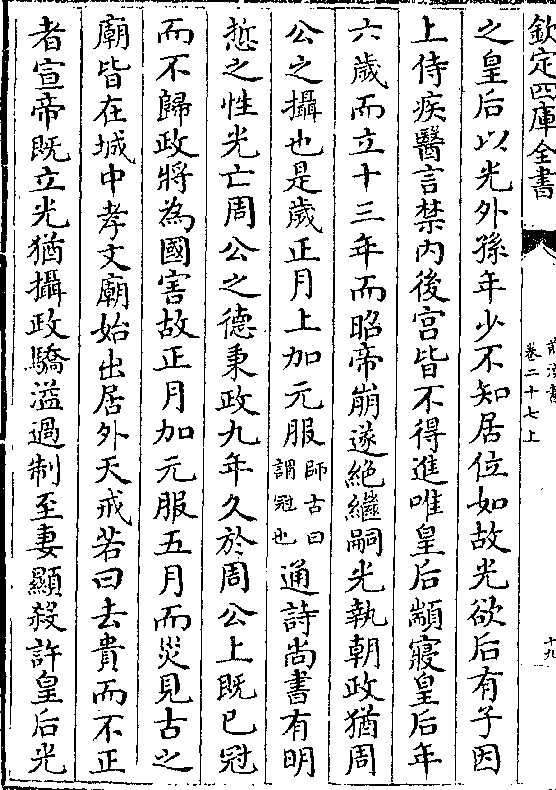 欽定四庫全書
前漢書
卷二十七上
十九
之皇后以光外孫年少不知居位如故光欲后有子因
上侍疾醫言禁內後宮皆不得進唯皇后顓寢皇后年
六歲而立十三年而昭帝崩遂絕繼嗣光執朝政猶周
公之攝也是歲正月上加元服師古曰謂冠也通詩尚書有明
悊之性光亡周公之德秉政九年久於周公上既已冠
而不歸政將為國害故正月加元服五月而災見古之
廟皆在城中孝文廟始出居外天戒若曰去貴而不正
者宣帝既立光猶攝政驕溢過制至妻顯殺許皇后光